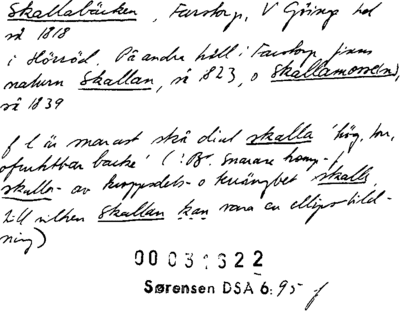 Skallabäcken, Farstorp, V Göinge hd
så 1818
i Hörröd. På andra håll i Farstorp finns
namn Skallan, så 1823, o Skallamosse(n),
så 1839
f l är snarast skå dial skalla 'hög, torr,
ofruktbar backe' (: Br. snarare komp-
skalle- av kroppsdels- o kvängbet skalle
till vilken Skallan kan vara en ellipsbild-
ning)
00031622
Sørensen DSA 6: 95 f